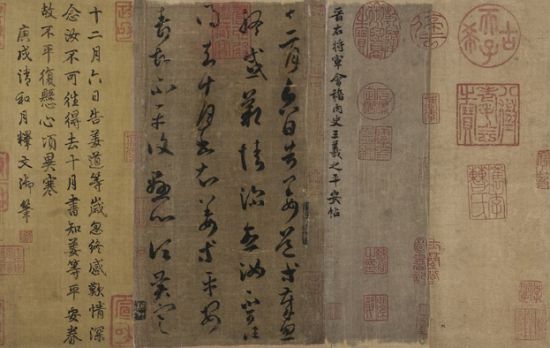 古希天子
八徵耄念之寶
晉右將軍會稽内史王羲之平安帖
十二月六日告姜道等歲忽
終感歎情深念汝不可往
得去十月書知姜等平安
壽故不平復懸心頃異寒
十二月六日告姜道等歲忽終感歎情深
念汝不可往得去十月書知姜等平安壽
故不平復懸心頃異寒
庚戌清和月釋文御筆